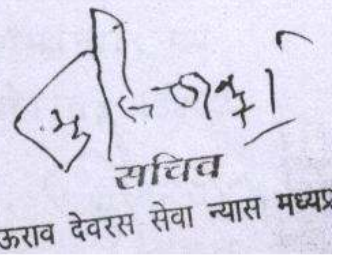 सचिव
ऊराव देवरस सेवा न्यास मध्यप्र